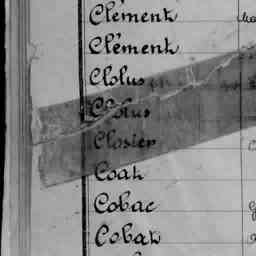 Clément
Clément
Clolus
Clolus
Closier
Coat
Cobac
Cobat